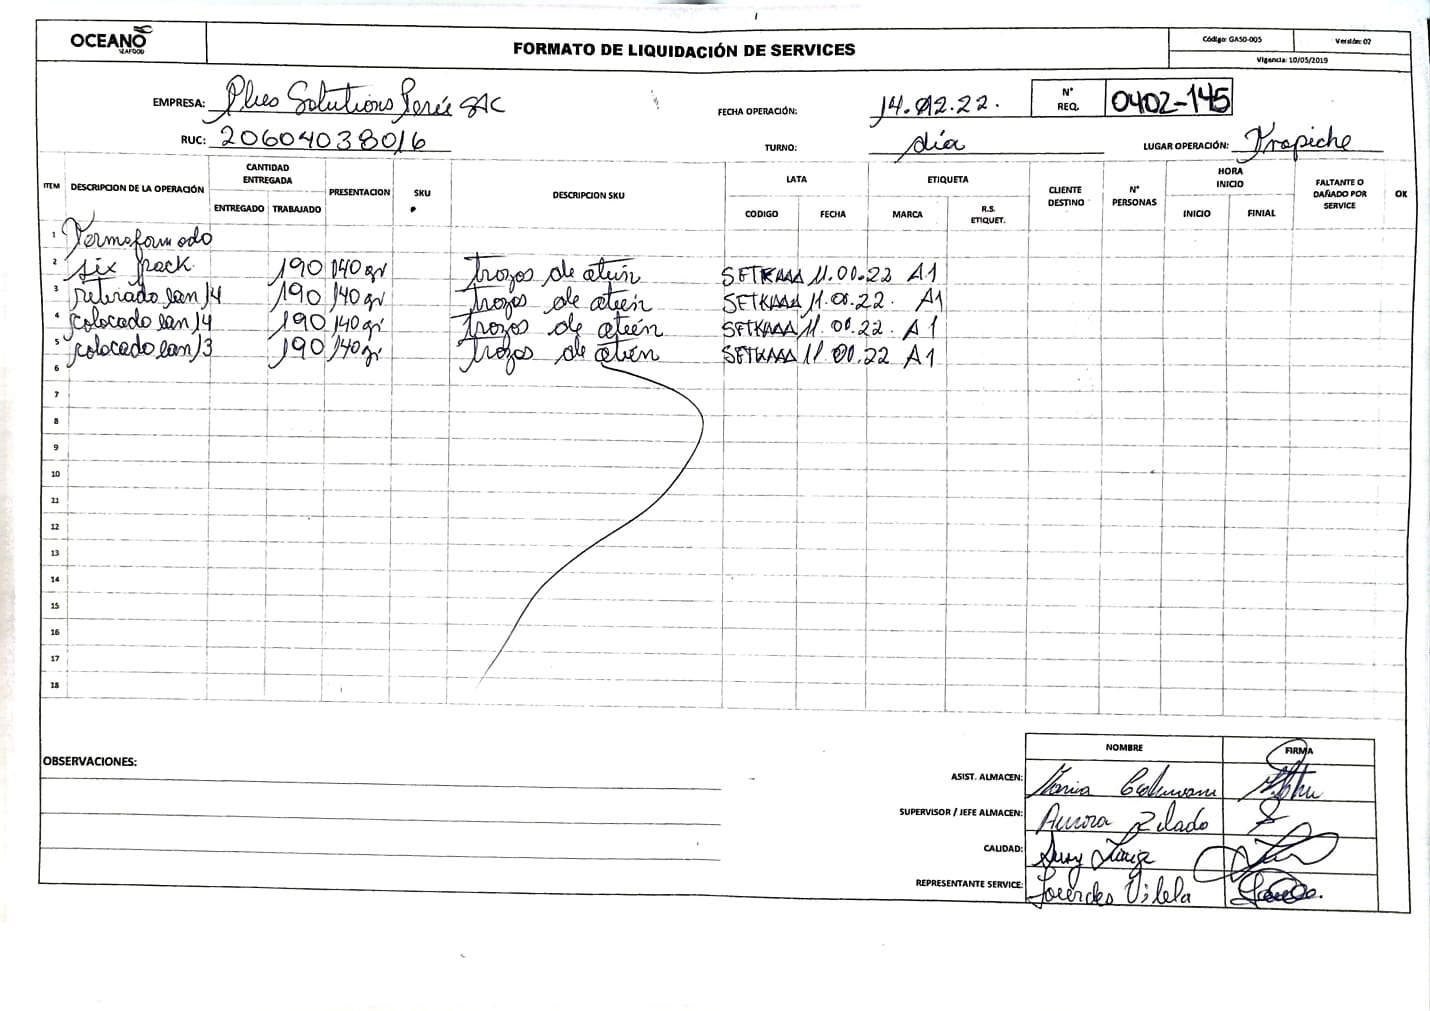 OCEANO
SEAFOOD
FORMATO DE LIQUIDACIÓN DE SERVICES
Código: GASO-005
Versión: 02
Vigencia: 10/05/2019
EMPRESA: Plus Solutions Perú SAC
FECHA OPERACIÓN: 14.02.22.
N° REQ. 0402-145
RUC: 20604038016
TURNO: día
LUGAR OPERACIÓN: Trapiche
ITEM
DESCRIPCION DE LA OPERACIÓN
CANTIDAD ENTREGADA
ENTREGADO
TRABAJADO
PRESENTACION
SKU
DESCRIPCION SKU
LATA
CODIGO
FECHA
ETIQUETA
MARCA
R.S. ETIQUET.
CLIENTE DESTINO
N° PERSONAS
HORA INICIO
INICIO
FINIAL
FALTANTE O DAÑADO POR SERVICE
OK
1 Termoformado
2 six pack 190 140gr trozos de atún 11.01.22 A1
3 retirado lam/4 190 140gr trozos de atún 11.01.22. A1
4 colocado lam/4 190 140gr trozos de atún 11.01.22. A1
5 colocado lam/3 190 140gr trozos de atún 11.01.22 A1
6
7
8
9
10
11
12
13
14
15
16
17
18
OBSERVACIONES:
NOMBRE
FIRMA
ASIST. ALMACEN: Maria
SUPERVISOR / JEFE ALMACEN: Aurora
CALIDAD: Susy
REPRESENTANTE SERVICE: Lourdes Vilela